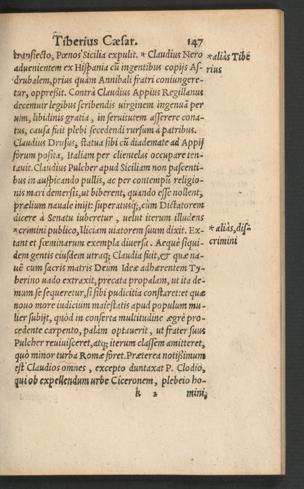 Tiberius Cæsar. 147
transiecto, Pœnos Sicilia expulit. * Claudius Nero
aduenientem ex Hispania cũ ingentibus copijs As-
drubalem, prius quàm Annibali fratri coniungere-
tur, oppressit. Contrà Claudius Appius Regillanus
decemuir legibus scribendis uirginem ingenuã per
uim, libidinis gratia, in seruitutem asserere cona-
tus, causa fuit plebi secedendi rursum à patribus.
Claudius Drusus, statua sibi cũ diademate ad Appij
forum posita, Italiam per clientelas occupare ten-
tauit. Claudius Pulcher apud Siciliam non pascenti-
bus in auspicando pullis, ac per contemptũ religio-
nis mari demersis, ut biberent, quando esse nollent,
prælium nauale inijt: superatusq́;, cùm Dictatorem
dicere à Senatu iuberetur, uelut iterum illudens
* crimini publico, Iliciam uiatorem suum dixit. Ex-
tant et fœminarum exempla diuersa. Aeque siqui-
dem gentis eiusdem utraq; Claudia fuit, & quæ na-
uẽ cum sacris matris Deum Ideæ adhærentem Ty-
berino uado extraxit, precata propalam, ut ita de-
mum se sequeretur, si sibi pudicitia constaret: et quæ
nouo more iudicium maiestatis apud populum mu-
lier subijt, quòd in conferta multitudine ægrè pro-
cedente carpento, palàm optauerit, ut frater suus
Pulcher reuiuisceret, atq; iterum classem amitteret,
quò minor turba Romæ foret. Præterea notissimum
est Claudios omnes, excepto duntaxat P. Clodio,
qui ob expellendum urbe Ciceronem, plebeio ho-
k 2 mini,
* aliàs Tibe
rius
* aliàs, disc
crimini